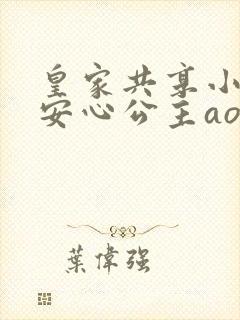 皇家共享小
安心公主ao
葉偉强